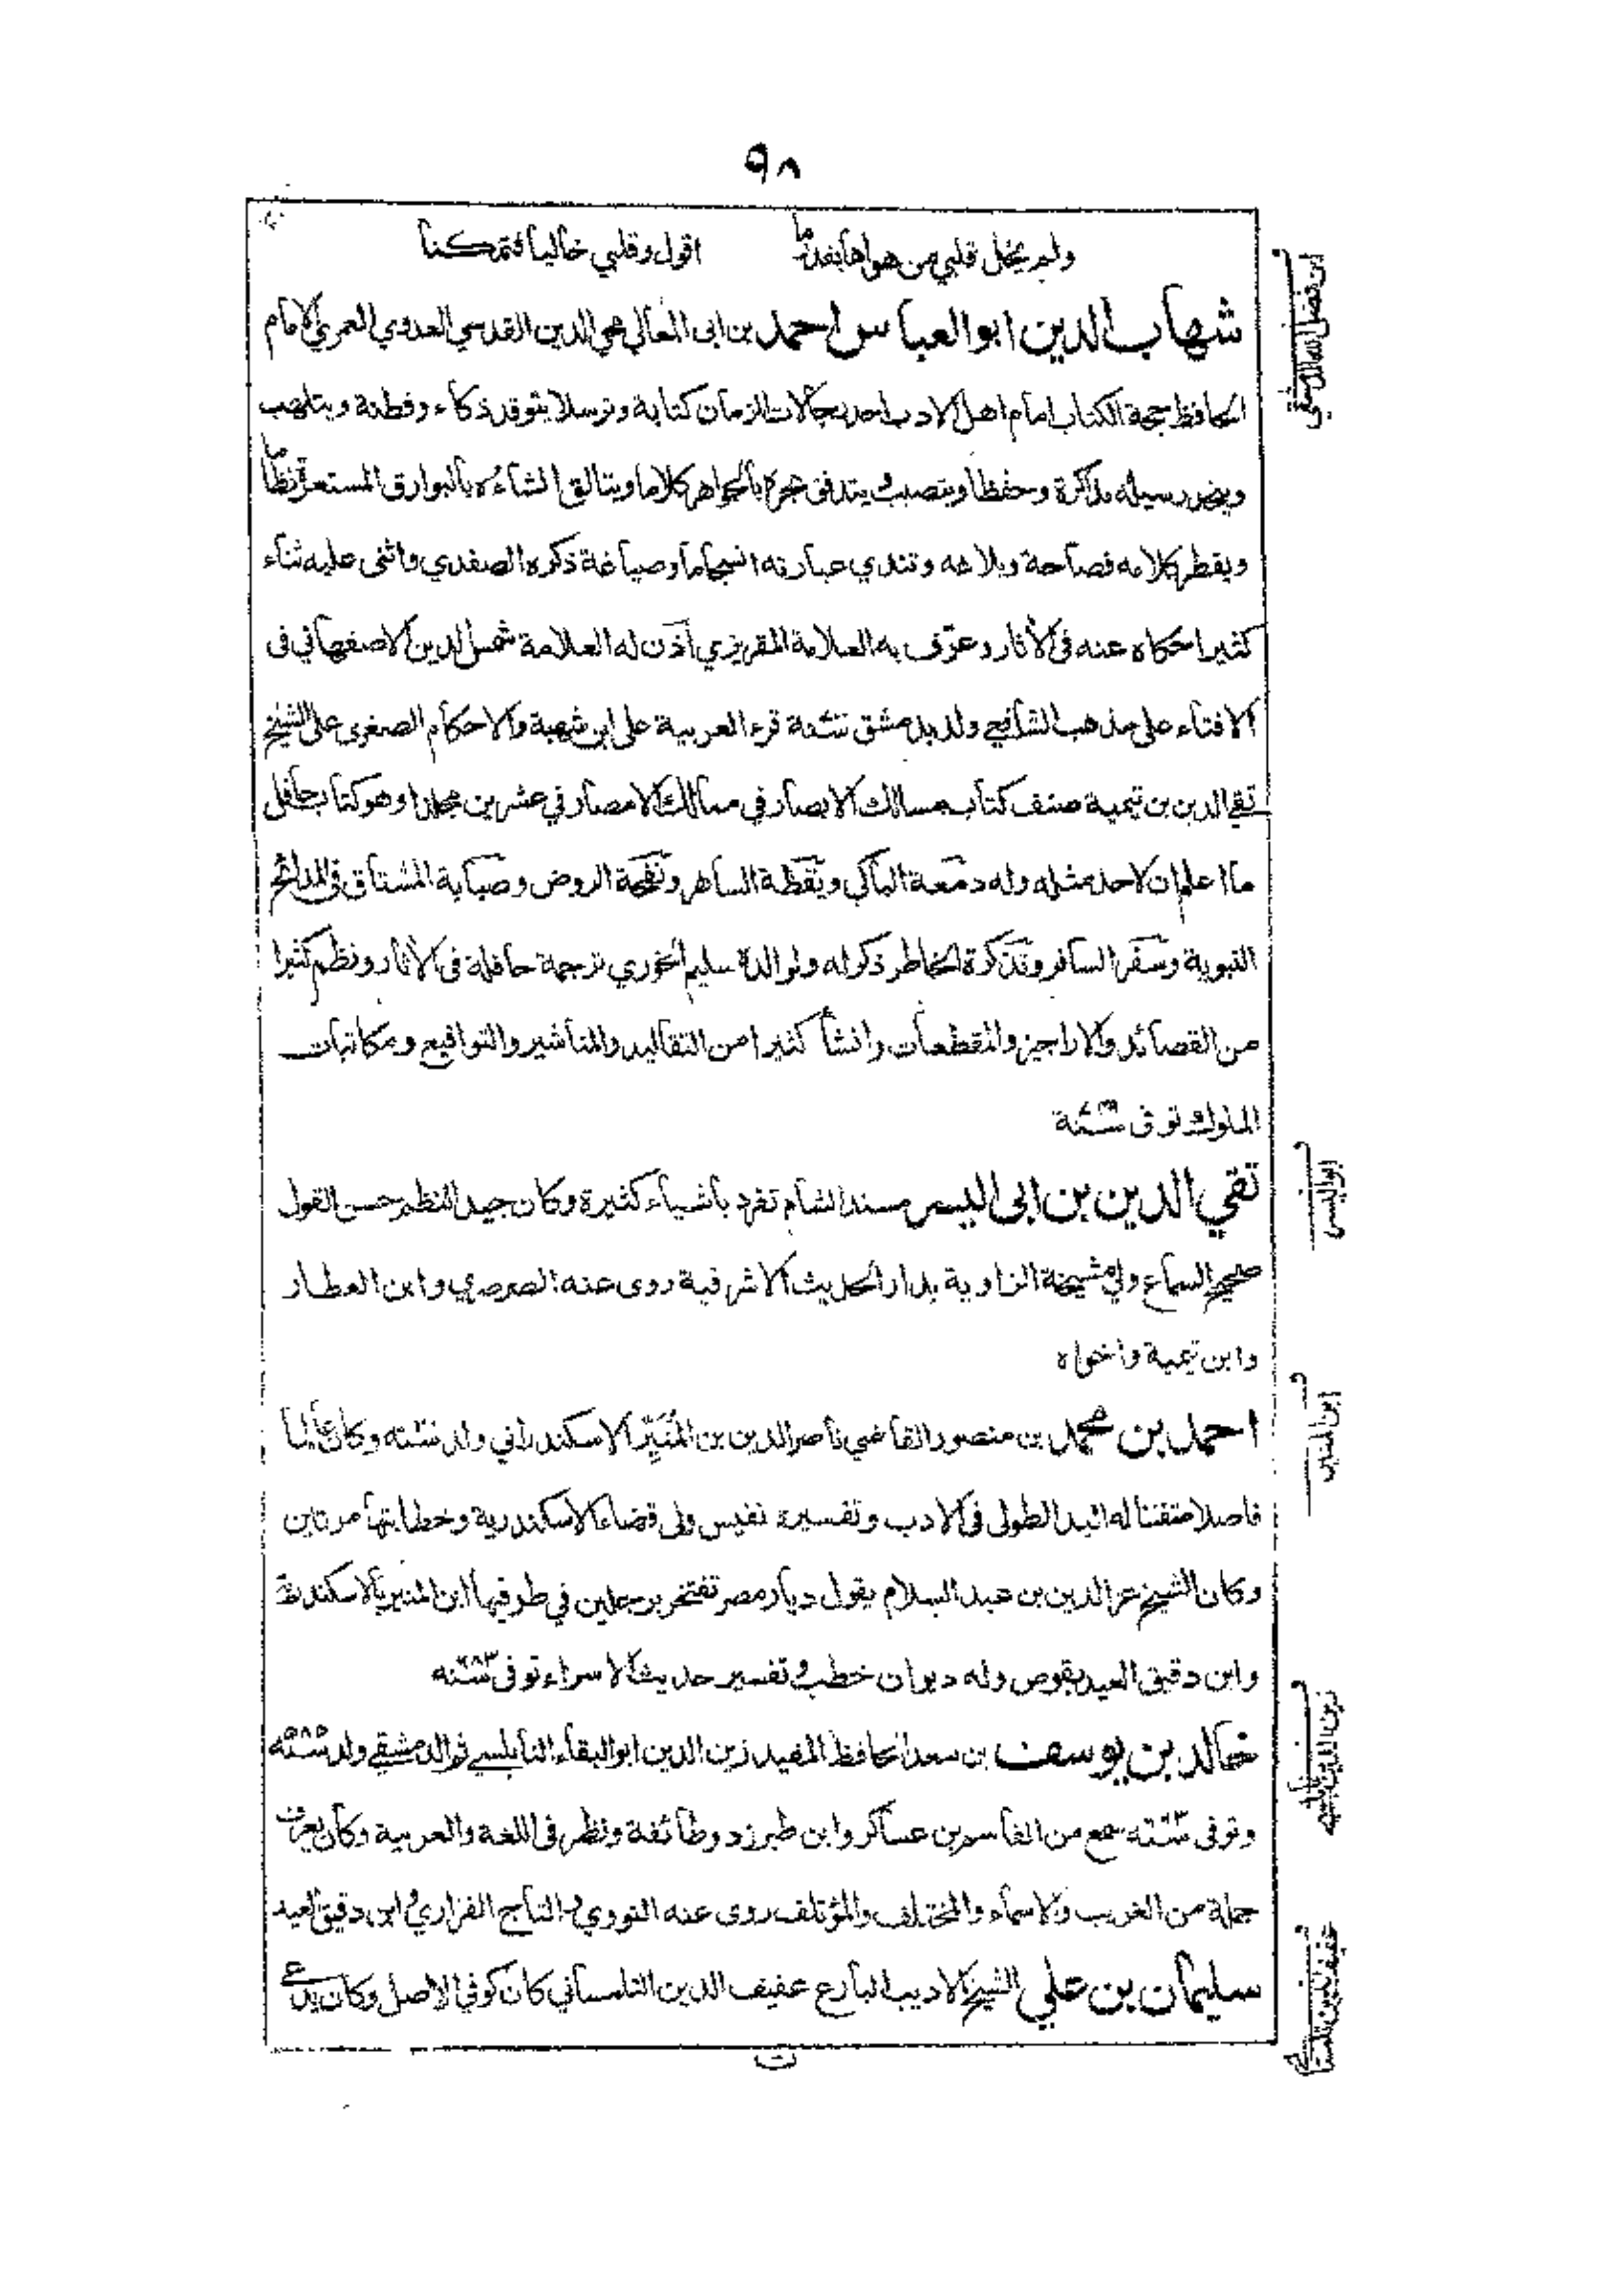 ٩٨
ولم يخل قلبي من هواها بقدر ما اقول وقلبي خاليا فتمكنا
شهاب الدين ابو العباس احمد بن ابى المعالي محي الدين القدسي العدوي العمري الامام
الحافظ حجة الكتاب امام اهل الادب احد رجالات الزمان كتابة وترسلا يتوقد ذكاء وفطنة ويتلهب
ويحدر سيله مذاكرة وحفظا ويتصبب ويتدفق بحره بالجواهر كلاما ويتالق انشاءه بالبوارق المستعرة نظاما
ويقطر كلامه فصاحة وبلاغه وتندي عبارته انسجاما وصياغة ذكره الصفدي واثنى عليه ثناء
كثيرا حكاه عنه فى الآثار وعرّف به العلامة المقريزي اذن له العلامة شمس الدين الاصفهاني فى
الافتاء على مذهب الشافعي ولد بدمشق قرء العربية على ابن شهبة والاحكام الصغرى على الشيخ
تقي الدين بن تيمية صنف كتاب مسالك الابصار في ممالك الامصار في عشرين مجلدا وهو كتاب حافل
ما اعلم ان لاحد مثله وله دمعة الباكي ويقظة الساهر ونفحة الروض وصبابة المشتاق فى المدائح
النبوية وسفر السافر وتذكرة الخاطر ذكر له ولوالده سليم الخوري ترجمة حافلة فى الآثار ونظم كثيرا
من القصائد والاراجيز والمقطعات وانشأ كثيرا من التقاليد والمناشير والتواقيع ومكاتبات
الملوك توفى
تقي الدين بن ابى اليسر مسند الشام تفرد باشياء كثيرة وكان جيد النظم حسن القول
صحيح السماع ولي مشيخة الزاوية بدار الحديث الاشرفية روى عنه الصرصري وابن العطار
وابن تيمية واخواه
احمد بن محمد بن منصور القاضي ناصر الدين بن المُنَيِّر الاسكندراني ولد وكان عالما
فاضلا متقنا له اليد الطولى فى الادب وتفسيره نفيس ولى قضاء الاسكندرية وخطابتها مرتين
وكان الشيخ عز الدين بن عبد السلام يقول ديار مصر تفتخر برجلين في طرفيها ابن المنير بالاسكندرية
وابن دقيق العيد بقوص وله ديوان خطب وتفسير حديث الاسراء توفى ٦٨٣سنه
خالد بن يوسف بن سعد الحافظ المفيد زين الدين ابو البقاء النابلسي ثم الدمشقي ولد ٥٨٥سنه
وتوفى سمع من القاسم بن عساكر وابن طبرزد وطائفة ونظر فى اللغة والعربية وكان يعرف
جملة من الغريب والاسماء والمختلف والمؤتلف روى عنه النووي والتاج الفزاري وابن دقيق العيد
سليمان بن علي الشيخ الاديب البارع عفيف الدين التلمساني كان كوفي الاصل وكان يدعي
ابن فضل الله الدمشقي
ابو اليسر
ابن المنير
زين الدين نابلسي
عفيف الدين تلمساني